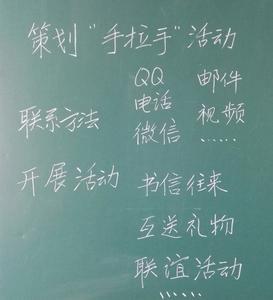 策划“手拉手”活动
QQ 邮件
电话 视频
联系方法 微信 ……
开展活动 书信往来
互送礼物
联谊活动
……